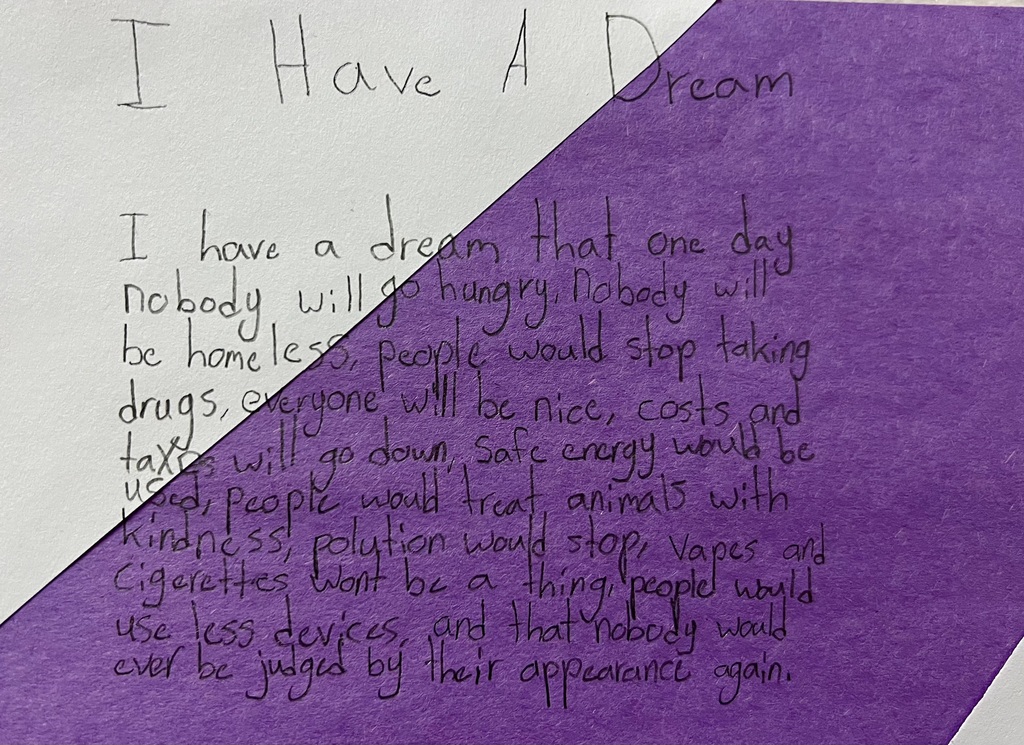 I Have A Dream
I have a dream that one day
nobody will go hungry, nobody will
be homeless, people would stop taking
drugs, everyone will be nice, costs and
taxes will go down, Safe energy would be
used, people would treat animals with
kindness, polution would stop, Vapes and
Cigerettes wont be a thing, people would
use less devices, and that nobody would
ever be judged by their appearance again.